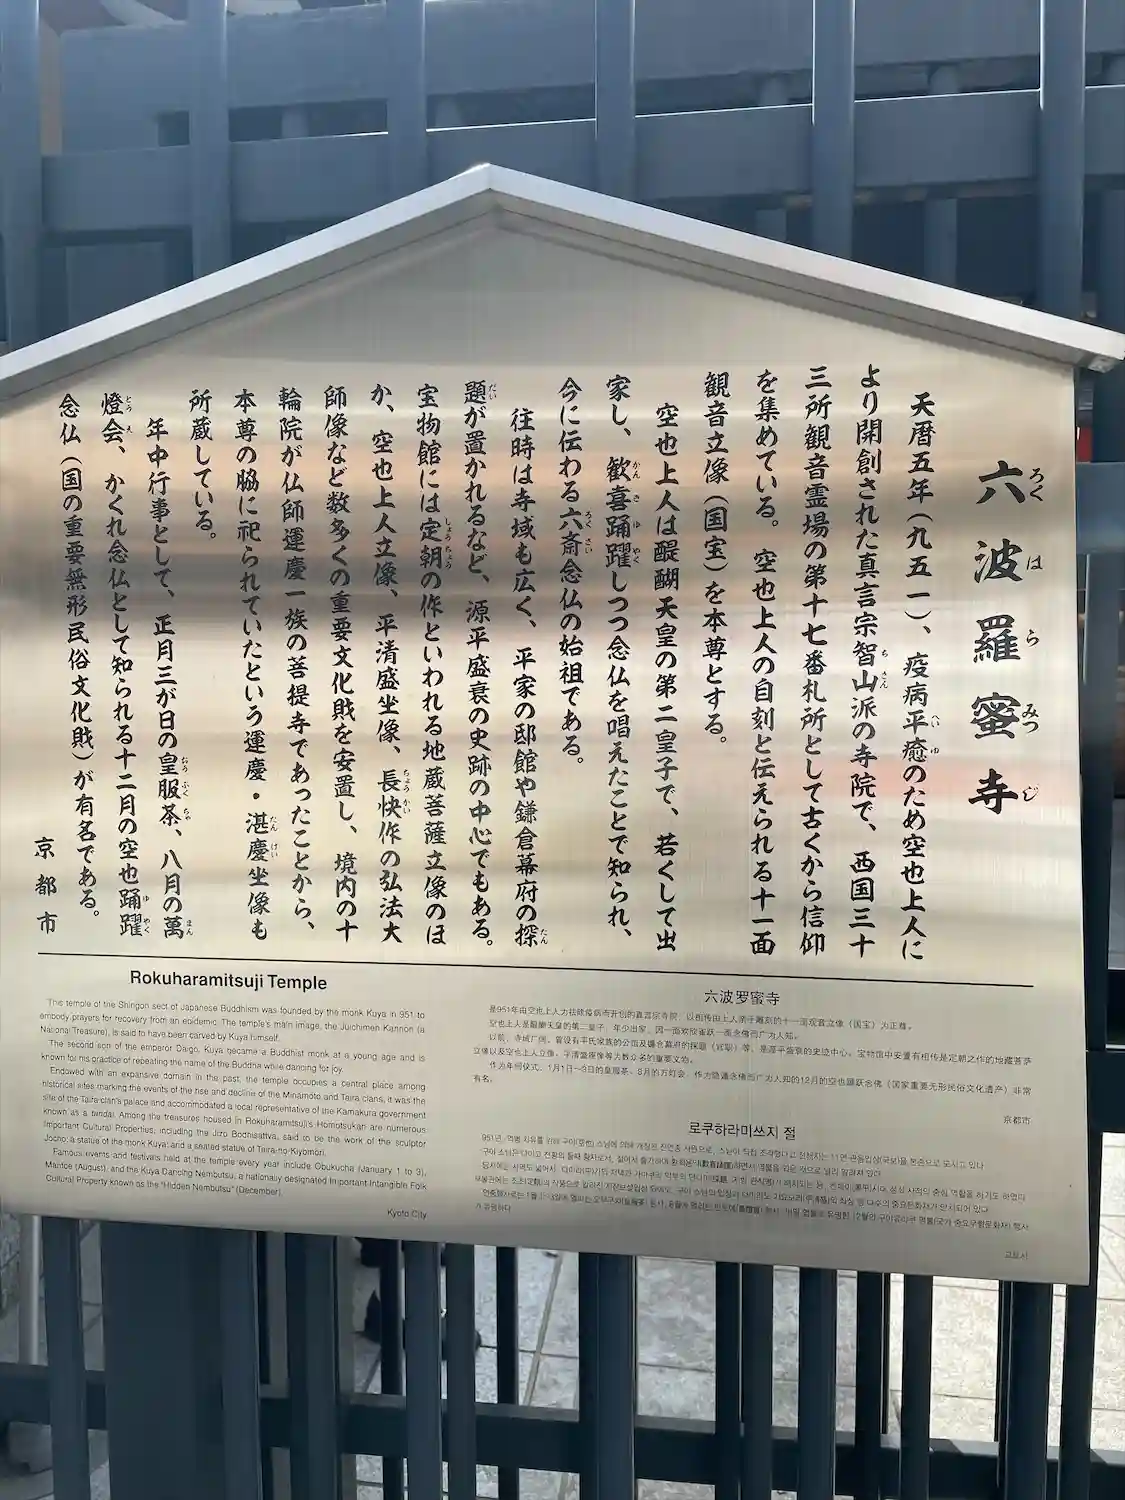 六波羅蜜寺
天暦五年（九五一）、疫病平癒のため空也上人に
より開創された真言宗智山派の寺院で、西国三十
三所観音霊場の第十七番札所として古くから信仰
を集めている。空也上人の自刻と伝えられる十一面
観音立像（国宝）を本尊とする。
空也上人は醍醐天皇の第二皇子で、若くして出
家し、歓喜踊躍しつつ念仏を唱えたことで知られ、
今に伝わる六斎念仏の始祖である。
往時は寺域も広く、平家の邸館や鎌倉幕府の探
題が置かれるなど、源平盛衰の史跡の中心でもある。
宝物館には定朝の作といわれる地蔵菩薩立像のほ
か、空也上人立像、平清盛坐像、長快作の弘法大
師像など数多くの重要文化財を安置し、境内の十
輪院が仏師運慶一族の菩提寺であったことから、
本尊の脇に祀られていたという運慶・湛慶坐像も
所蔵している。
年中行事として、正月三が日の皇服茶、八月の萬
燈会、かくれ念仏として知られる十二月の空也踊躍
念仏（国の重要無形民俗文化財）が有名である。
京都市
Rokuharamitsuji Temple
This temple of the Shingon sect of Japanese Buddhism was founded by the monk Kuya in 951 to
embody prayers for recovery from an epidemic. The temple's main image, the Juichimen Kannon (a
National Treasure), is said to have been carved by Kuya himself.
The second son of the emperor Daigo, Kuya became a Buddhist monk at a young age and is
known for his practice of repeating the name of the Buddha while dancing for joy.
Endowed with an expansive domain in the past, the temple occupies a central place among
historical sites marking the events of the rise and decline of the Minamoto and Taira clans, it was the
site of the Taira clan's palace and accommodated a local representative of the Kamakura government
known as a tandai. Among the treasures housed in Rokuharamitsuji's Homotsukan are numerous
Important Cultural Properties, including the Jizo Bodhisattva, said to be the work of the sculptor
Jocho; a statue of the monk Kuya; and a seated statue of Taira-no-Kiyomori.
Famous events and festivals held at the temple every year include Obukucha (January 1 to 3),
Mantoe (August), and the Kuya Dancing Nembutsu, a nationally designated Important Intangible Folk
Cultural Property known as the "Hidden Nembutsu" (December).
Kyoto City
六波罗蜜寺
是951年由空也上人为祛除疫病而开创的真言宗寺院，以相传由上人亲手雕刻的十一面观音立像（国宝）为正尊。
空也上人是醍醐天皇的第二皇子，年少出家，因一面欢欣雀跃一面念佛而广为人知。
京都市
로쿠하라미쓰지 절
교토시